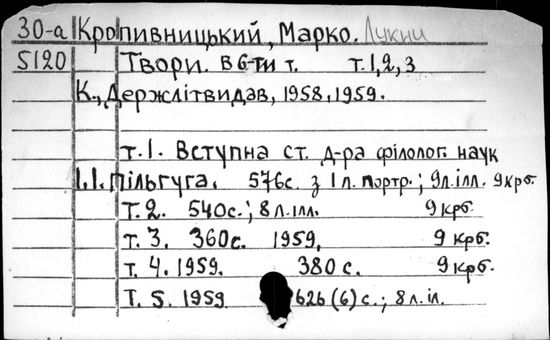 30-а Кропивницький, Марко. Лукич
5120 Твори. в 6-ти т. т. 1, 2, 3
К., Держлітвидав, 1958, 1959.
т. 1. Вступна ст. д-ра філолог. наук
І.І. Пільгуга. 576с. з 1 л. портр.; 9л. ілл. 9 крб.
т. 2. 540с.; 8 л. ілл. 9 крб.
т. 3. 360с. 1959. 9 крб.
т. 4. 1959. 380 с. 9 крб.
т. 5. 1959 626 (6) с.; 8 л. іл.